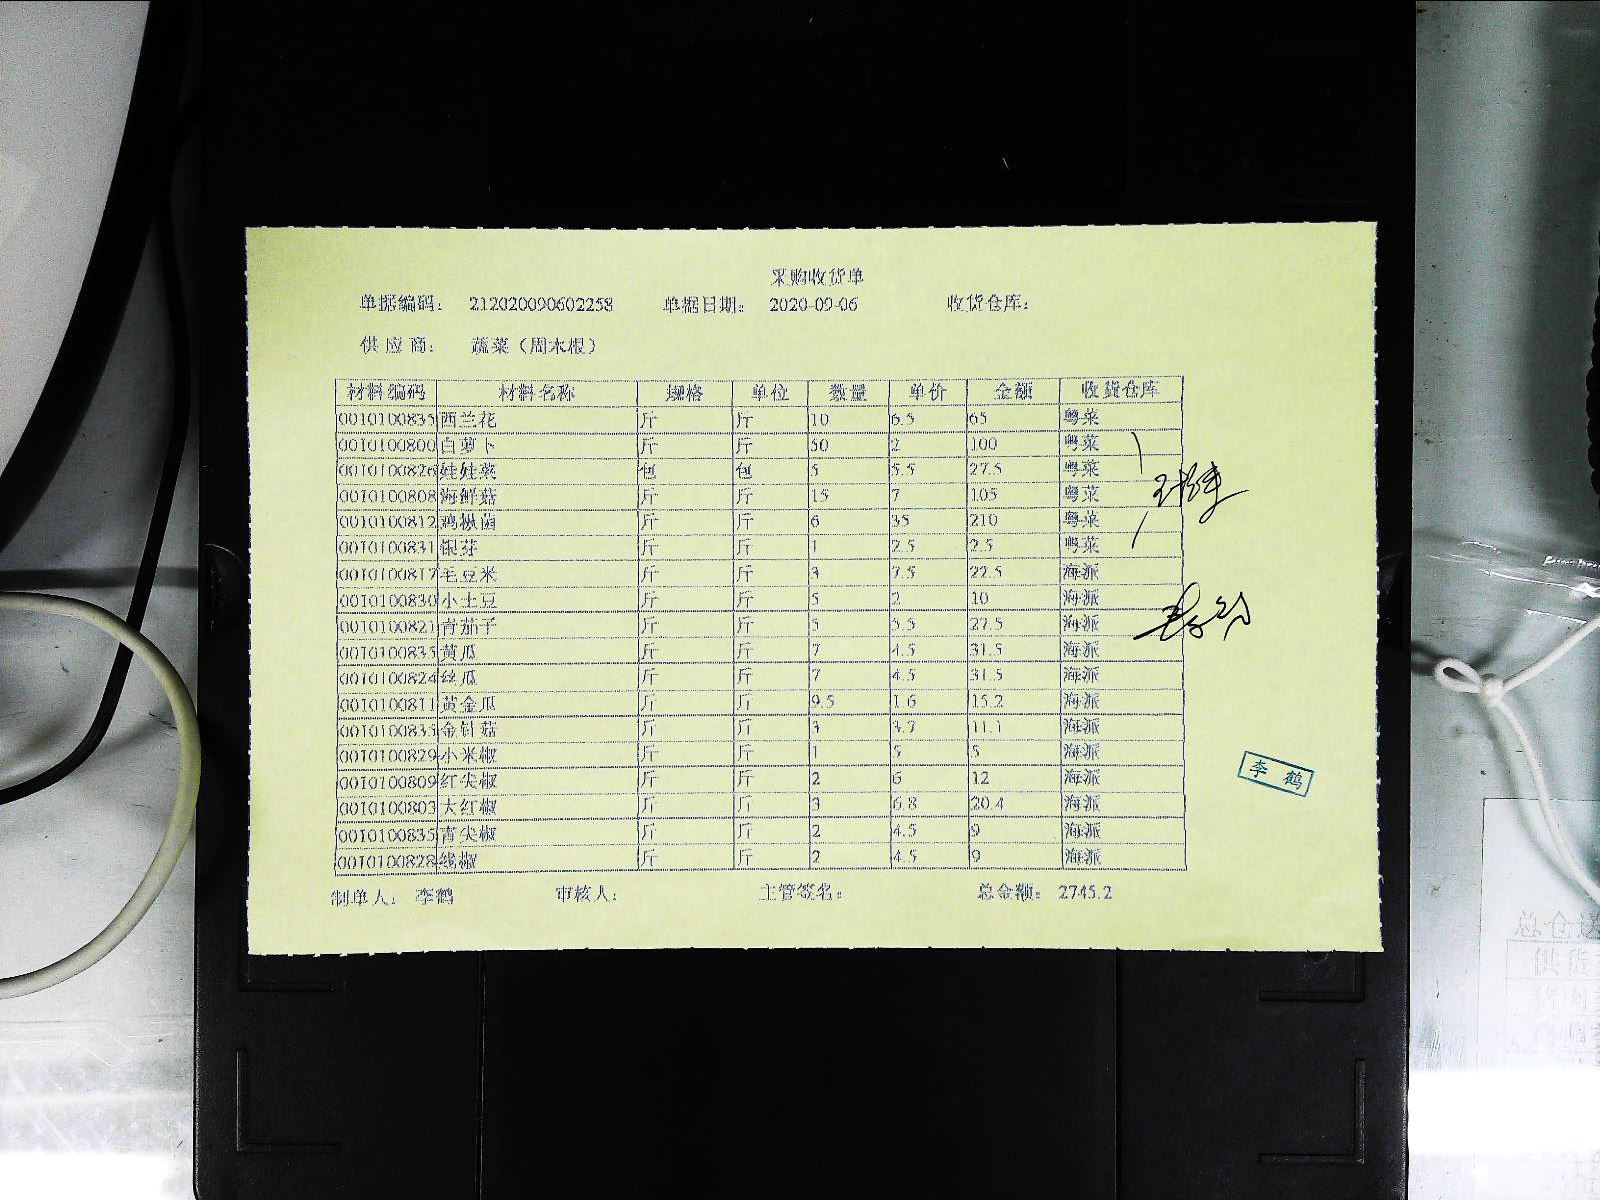 采购收货单
单据编码： 212020090602258 单据日期： 2020-09-06 收货仓库：
供 应 商： 蔬菜（周木根）
材料编码 材料名称 规格 单位 数量 单价 金额 收货仓库
0010100835 西兰花 斤 斤 10 6.5 65 粤菜
0010100800 白萝卜 斤 斤 50 2 100 粤菜
0010100826 娃娃菜 包 包 5 5.5 27.5 粤菜
0010100808 海鲜菇 斤 斤 15 7 105 粤菜
0010100812 鸡枞菌 斤 斤 6 35 210 粤菜
0010100831 银芽 斤 斤 1 2.5 2.5 粤菜
0010100817 毛豆米 斤 斤 3 7.5 22.5 海派
0010100830 小土豆 斤 斤 5 2 10 海派
0010100821 青茄子 斤 斤 5 5.5 27.5 海派
0010100835 黄瓜 斤 斤 7 4.5 31.5 海派
0010100824 丝瓜 斤 斤 7 4.5 31.5 海派
0010100811 黄金瓜 斤 斤 9.5 1.6 15.2 海派
0010100835 金针菇 斤 斤 3 3.7 11.1 海派
0010100829 小米椒 斤 斤 1 5 5 海派
0010100809 红尖椒 斤 斤 2 6 12 海派
0010100803 大红椒 斤 斤 3 6.8 20.4 海派
0010100835 青尖椒 斤 斤 2 4.5 9 海派
0010100828 线椒 斤 斤 2 4.5 9 海派
李 鹤
制单人： 李鹤 审核人： 主管签名： 总金额： 2745.2
总仓送
供货